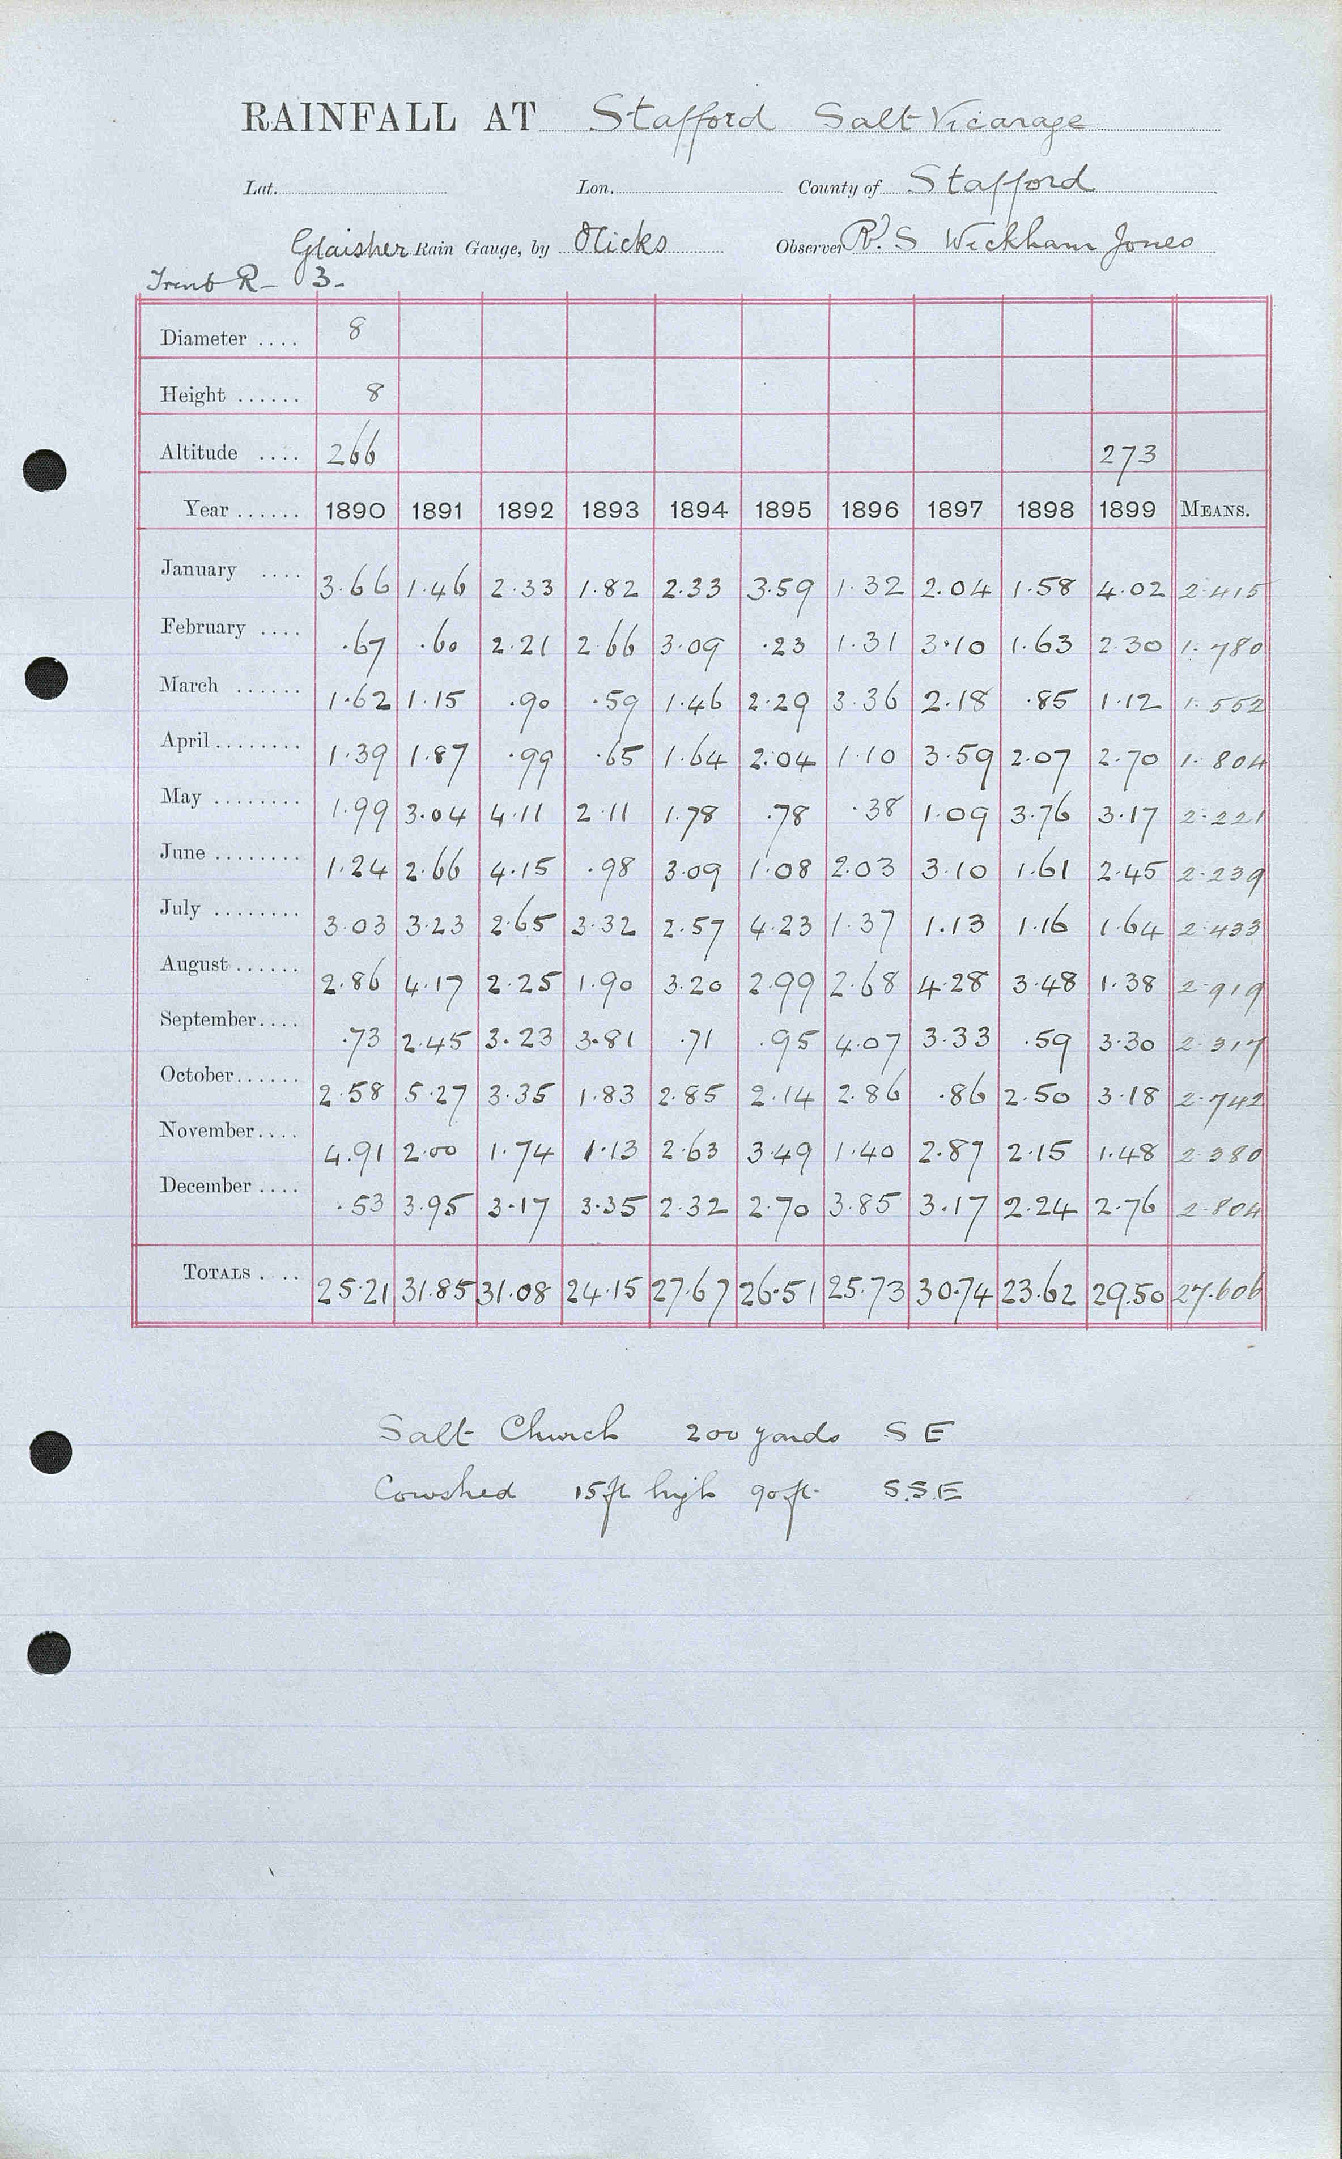 RAINFALL AT Stafford Salt Vicarage
Lat. Lon. County of Stafford
Glaisher Rain Gauge, by Hicks Observer R. S Wickham Jones
Trent R- 3-
Diameter .... 8
Height ...... 8
Altitude .... 266 273
Year ...... 1890 1891 1892 1893 1894 1895 1896 1897 1898 1899 MEANS.
January .... 3.66 1.46 2.33 1.82 2.33 3.59 1.32 2.04 1.58 4.02 2.415
February .... .67 .60 2.21 2.66 3.09 .23 1.31 3.10 1.63 2.30 1.780
March ...... 1.62 1.15 .90 .59 1.46 2.29 3.36 2.18 .85 1.12 1.552
April ........ 1.39 1.87 .99 .65 1.64 2.04 1.10 3.59 2.07 2.70 1.804
May ........ 1.99 3.04 4.11 2.11 1.78 .78 .38 1.09 3.76 3.17 2.221
June ........ 1.24 2.66 4.15 .98 3.09 1.08 2.03 3.10 1.61 2.45 2.239
July ........ 3.03 3.23 2.65 3.32 2.57 4.23 1.37 1.13 1.16 1.64 2.433
August ...... 2.86 4.17 2.25 1.90 3.20 2.99 2.68 4.28 3.48 1.38 2.919
September .... .73 2.45 3.23 3.81 .71 .95 4.07 3.33 .59 3.30 2.317
October ...... 2.58 5.27 3.35 1.83 2.85 2.14 2.86 .86 2.50 3.18 2.742
November .... 4.91 2.00 1.74 1.13 2.63 3.49 1.40 2.87 2.15 1.48 2.380
December .... .53 3.95 3.17 3.35 2.32 2.70 3.85 3.17 2.24 2.76 2.804
TOTALS .... 25.21 31.85 31.08 24.15 27.67 26.51 25.73 30.74 23.62 29.50 27.606
Salt Church 200 yards S E
Cowshed 15ft high 90ft. S.S.E